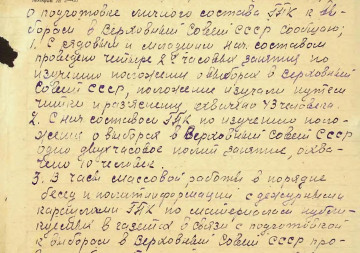 о подготовке личного состава ГПК к вы-
борам в Верховный Совет СССР сообщаю;
1. С рядовым и младшим нач. составом
проведено четыре 2х часовых занятия по
изучению положения о выборах в Верховный
Совет СССР, положение изучали путем
читки и разъяснен, охвачено 43 человека.
2. С нач. составом ГПК по изучению поло-
жения о выборах в Верховный Совет СССР
одно двухчасовое полит занятие, охва-
чено 10 человек.
3. В части массовой работы в порядке
бесед и политинформаций с дежурными
караулами ГПК по материалам
в газетах в связи с подготовкой
к выборам в Верховный Совет СССР про-